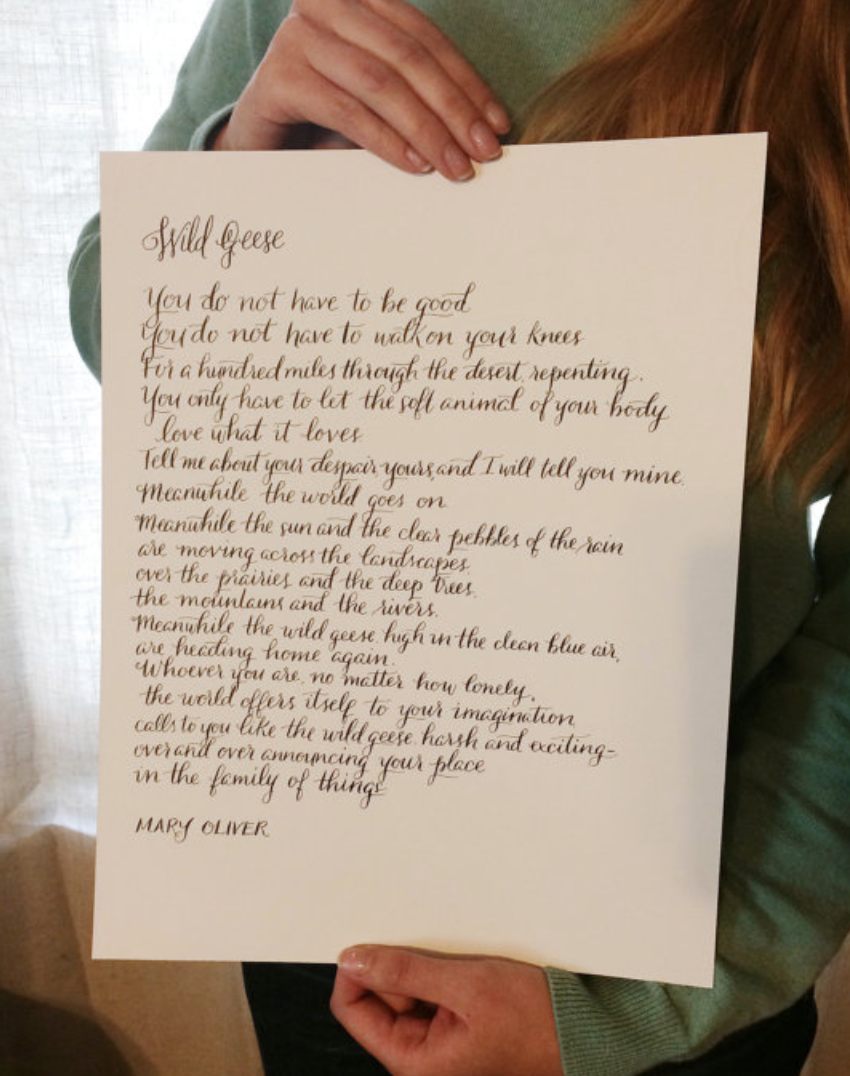 Wild Geese
You do not have to be good
You do not have to walk on your knees
For a hundred miles through the desert, repenting.
You only have to let the soft animal of your body
love what it loves
Tell me about your despair, yours, and I will tell you mine.
Meanwhile the world goes on
Meanwhile the sun and the clear pebbles of the rain
are moving across the landscapes,
over the prairies and the deep trees,
the mountains and the rivers.
Meanwhile the wild geese high in the clean blue air,
are heading home again.
Whoever you are, no matter how lonely,
the world offers itself to your imagination
calls to you like the wild geese, harsh and exciting-
over and over announcing your place
in the family of things
MARY OLIVER